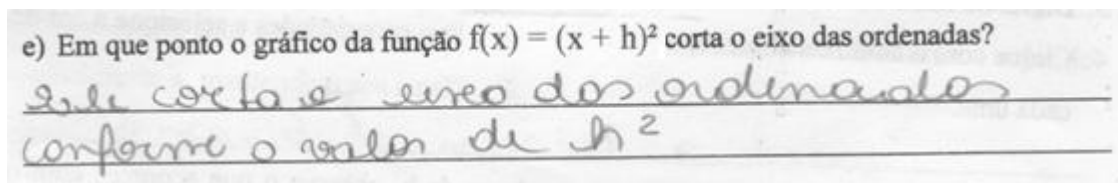 e) Em que ponto o gráfico da função f(x) = (x + h)² corta o eixo das ordenadas?
ele corta o eixo das ordenadas
conforme o valor de h²